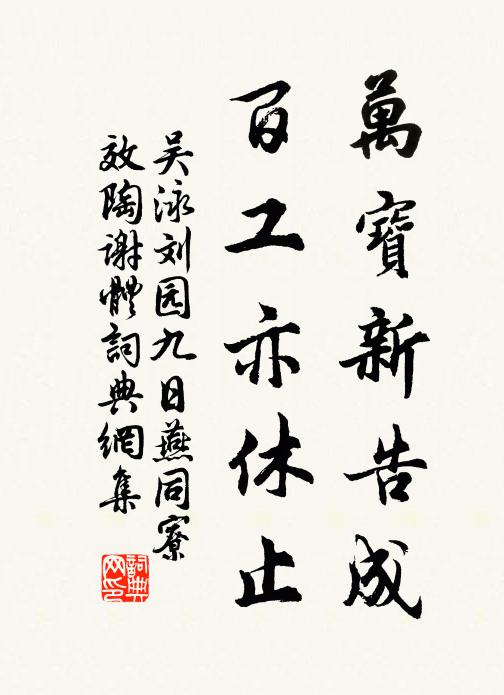 萬寶新告成
百工亦休止
吴泳刘园九日燕同寮
效陶謝體詞典網集
詞典
网印